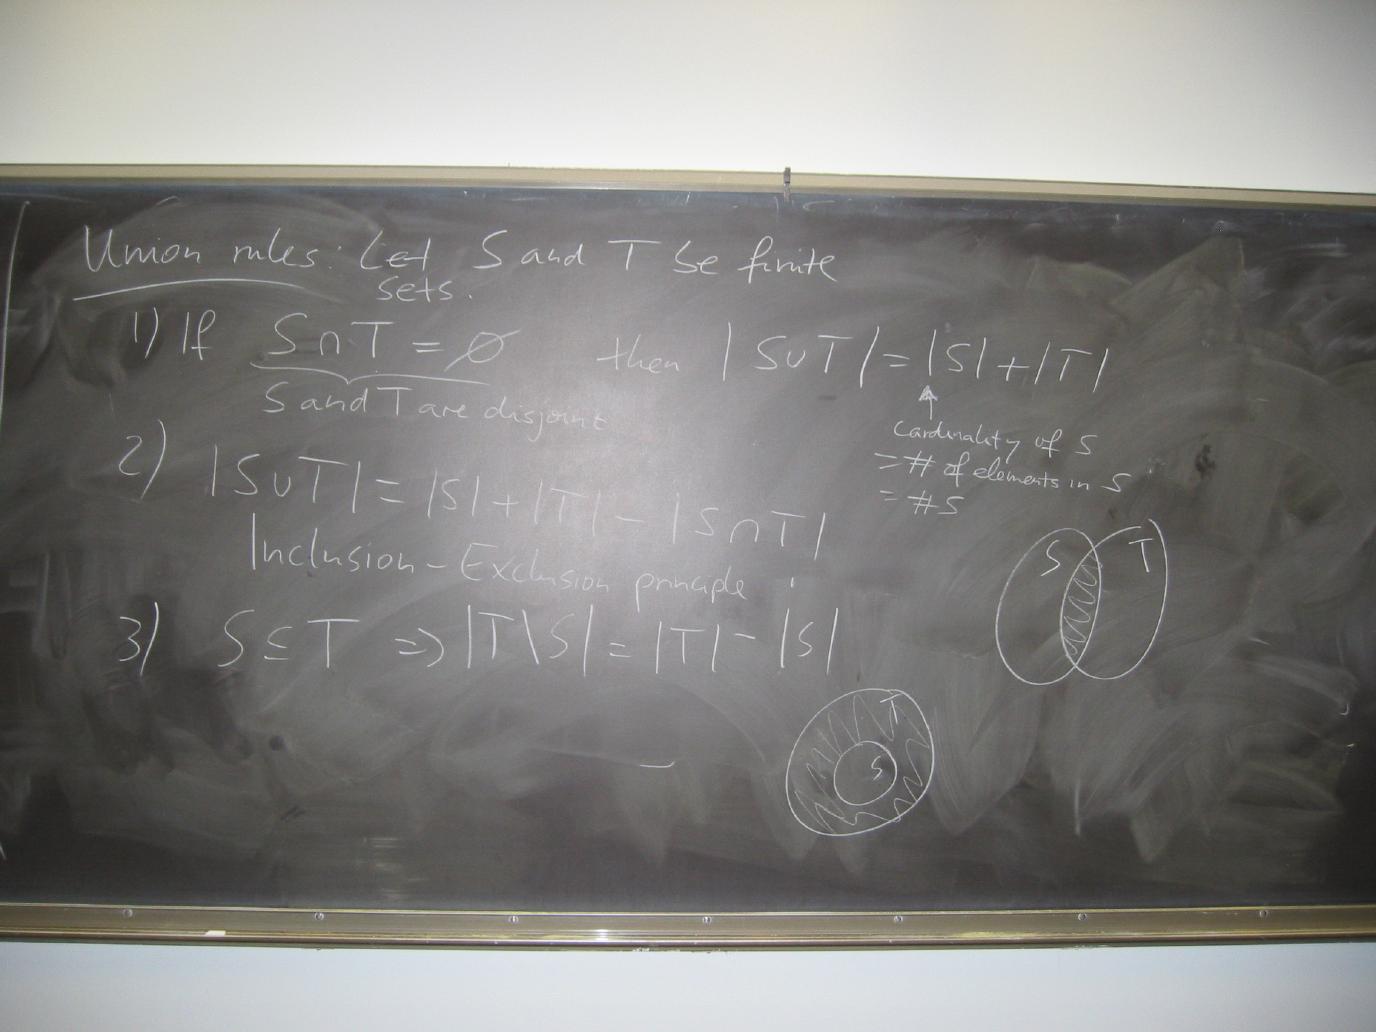 Union rules: Let S and T be finite
sets.
1) If S∩T = ∅ then |S∪T| = |S| + |T|
S and T are disjoint
cardinality of S
= # of elements in S
= #S
2) |S∪T| = |S| + |T| - |S∩T|
Inclusion-Exclusion principle
S T
3) S ⊆ T ⇒ |T\S| = |T| - |S|
T
S